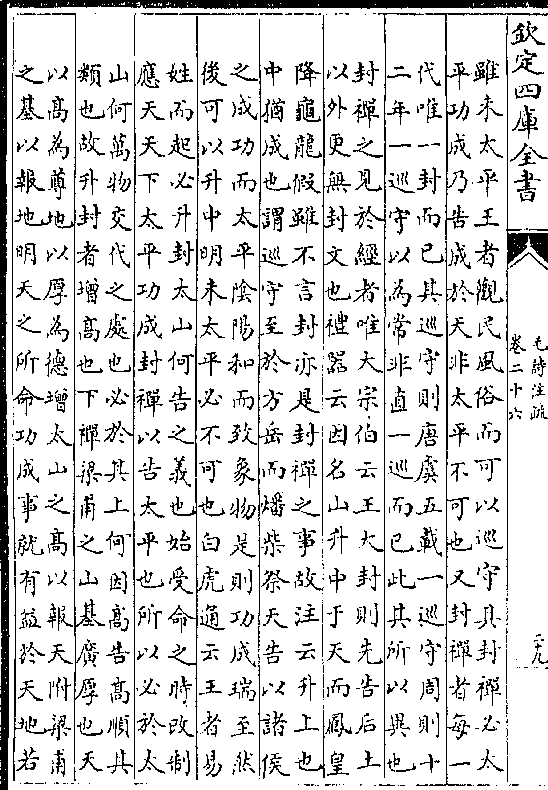 欽定四庫全書
毛詩注疏
卷二十六
二九
雖未太平王者觀民風俗而可以巡守其封禪必太
平功成乃告成於天非太平不可也又封禪者每一
代唯一封而已其巡守則唐虞五載一巡守周則十
二年一巡守以為常非直一巡而已此其所以異也
封禪之見於經者唯大宗伯云王大封則先告后土
以外更無封文也禮器云因名山升中于天而鳳皇
降龜龍假雖不言封亦是封禪之事故注云升上也
中猶成也謂巡守至於方岳而燔柴祭天告以諸侯
之成功而太平陰陽和而致象物是則功成瑞至然
後可以升中明未太平必不可也白虎通云王者易
姓而起必升封太山何告之義也始受命之時改制
應天天下太平功成封禪以告太平也所以必於太
山何萬物交代之處也必於其上何因高告高順其
類也故升封者增高也下禪梁甫之山基廣厚也天
以高為尊地以厚為德增太山之高以報天附梁甫
之基以報地明天之所命功成事就有益於天地若